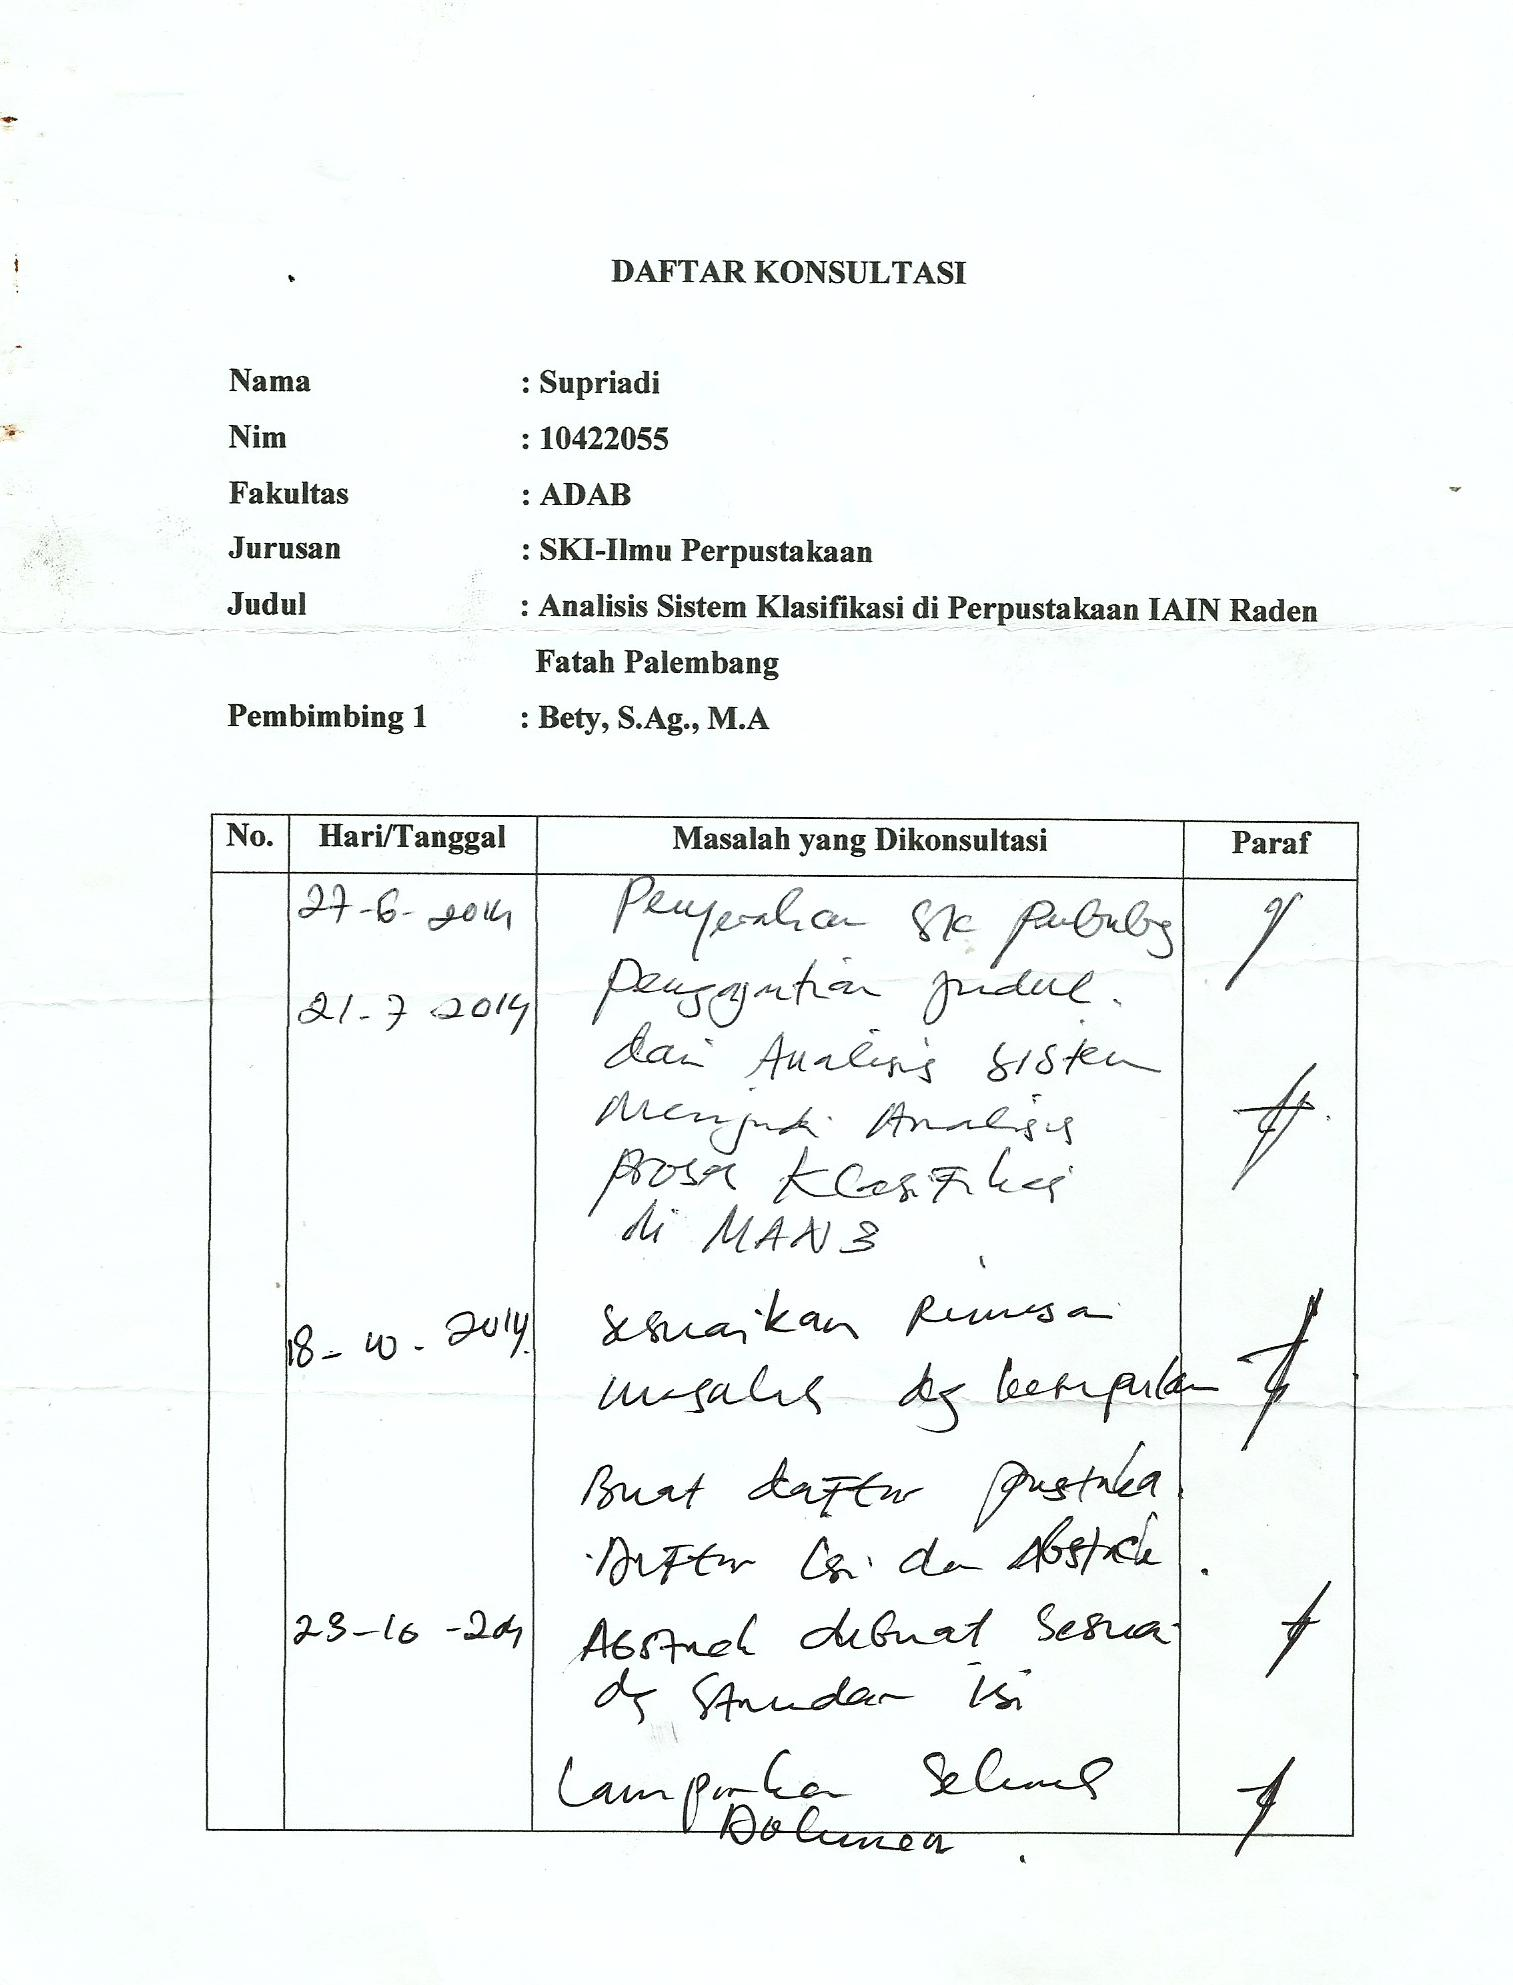 DAFTAR KONSULTASI
Nama : Supriadi
Nim : 10422055
Fakultas : ADAB
Jurusan : SKI-Ilmu Perpustakaan
Judul : Analisis Sistem Klasifikasi di Perpustakaan IAIN Raden
Fatah Palembang
Pembimbing 1 : Bety, S.Ag., M.A
No. Hari/Tanggal Masalah yang Dikonsultasi Paraf
27-6-2014 Penyerahan SK
21-7 2014 Penggantian judul.
dari Analisis sistem
menjadi Analisis
proses Klasifikasi
di MAN 3
18-10-2014. Sesuaikan Rumusan
masalah dg kesimpulan
Buat daftar pustaka.
Daftar isi dan Abstrak.
23-10-2014 Abstrak dibuat sesuai
dg Standar isi
Lampirkan Seluruh
Dokumen.